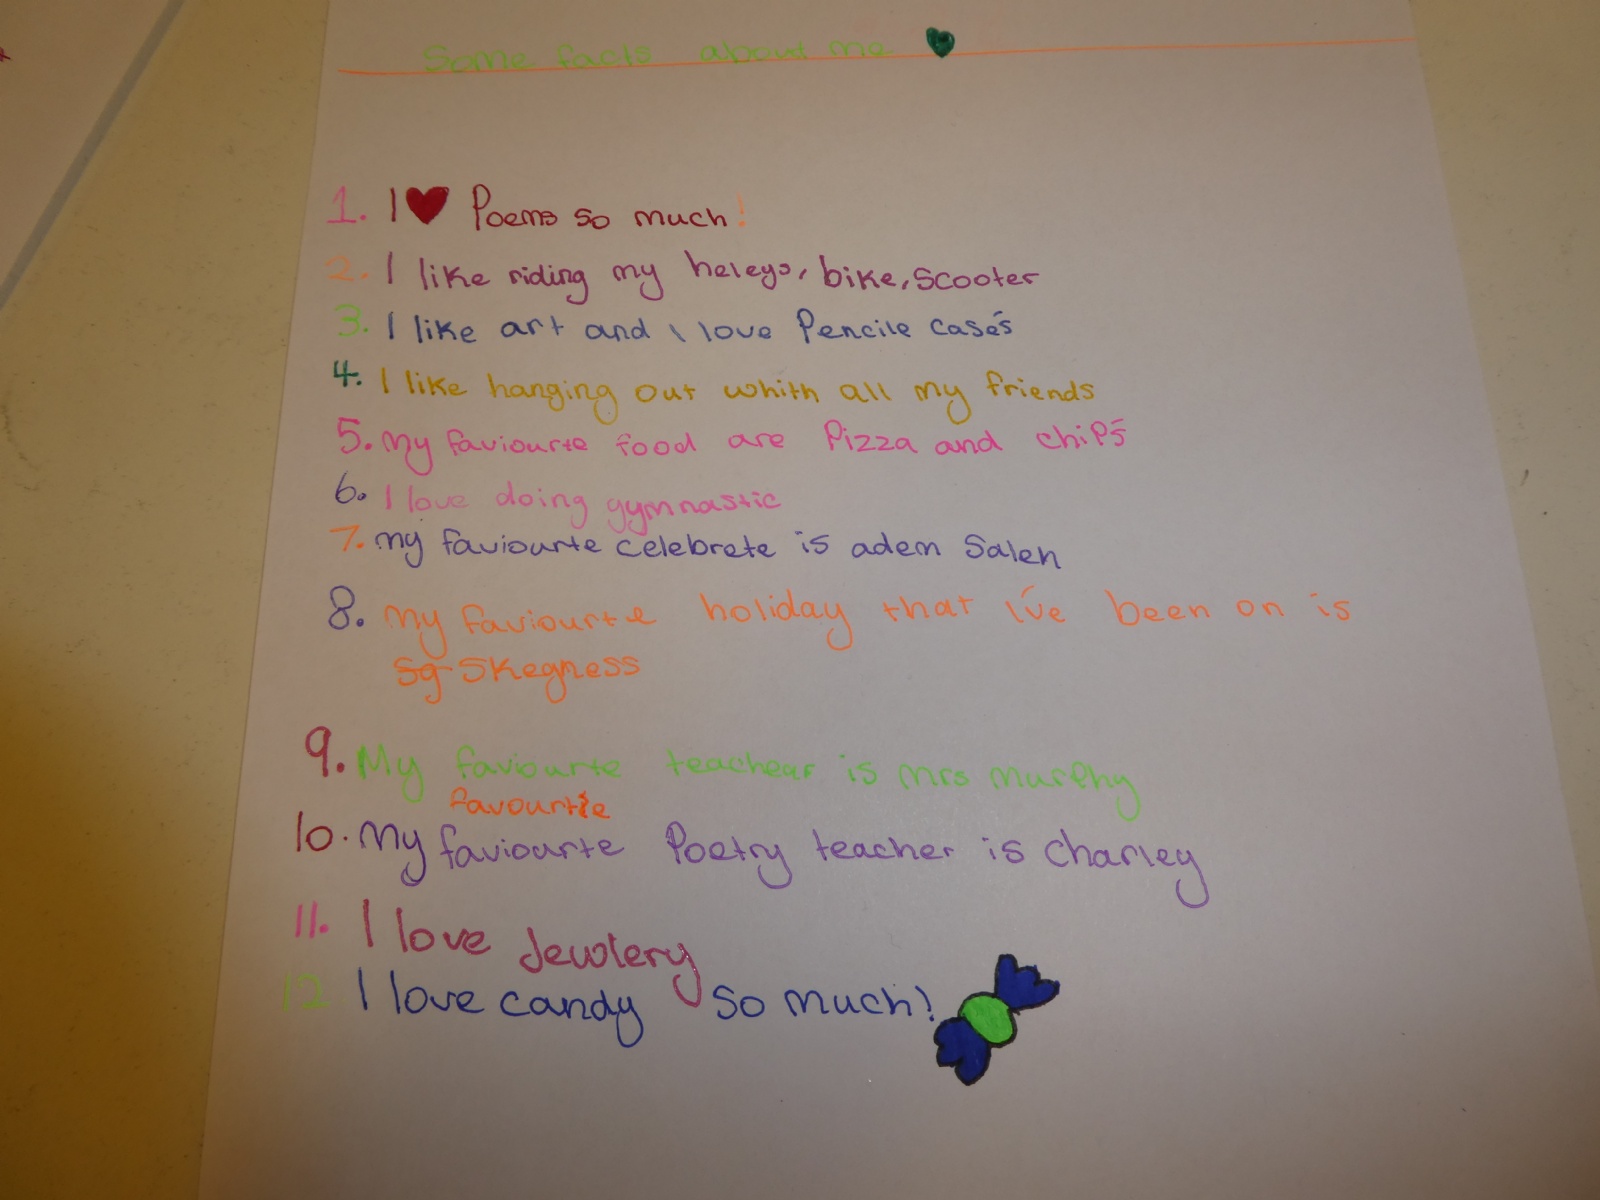 Some facts about me
1. I ♥ Poems so much!
2. I like riding my heleys, bike, scooter
3. I like art and I love Pencile cases
4. I like hanging out whith all my friends
5. My faviourte food are Pizza and chips
6. I love doing gymnastic
7. my faviourte celebrete is adem Saleh
8. My faviourte holiday that i've been on is
Sg Skegness
9. My faviourte teachear is mrs murphy
favourtie
10. My faviourte Poetry teacher is Charley
11. I love Jewlery
12 I love candy so much!